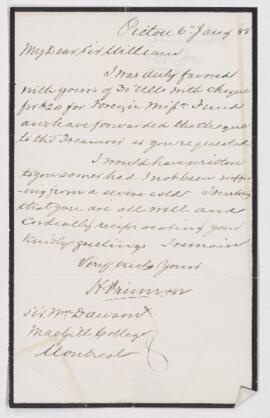 Pictou 6th Jany 88
My Dear Sir William
I was duly favored
with yours of 30 Ult with cheque
for $20 for Foreign Miss. Fund
and have forwarded the cheque
to the Treasurer as you requested
I would have written
to you sooner had I not been suffer
ing from a severe cold Trusting
that you are all well and
Cordially reciprocating your
kindly greeting I remain
Very truly Yours
H Primrose
Sir Wm Dawson
MacGill College
Montreal